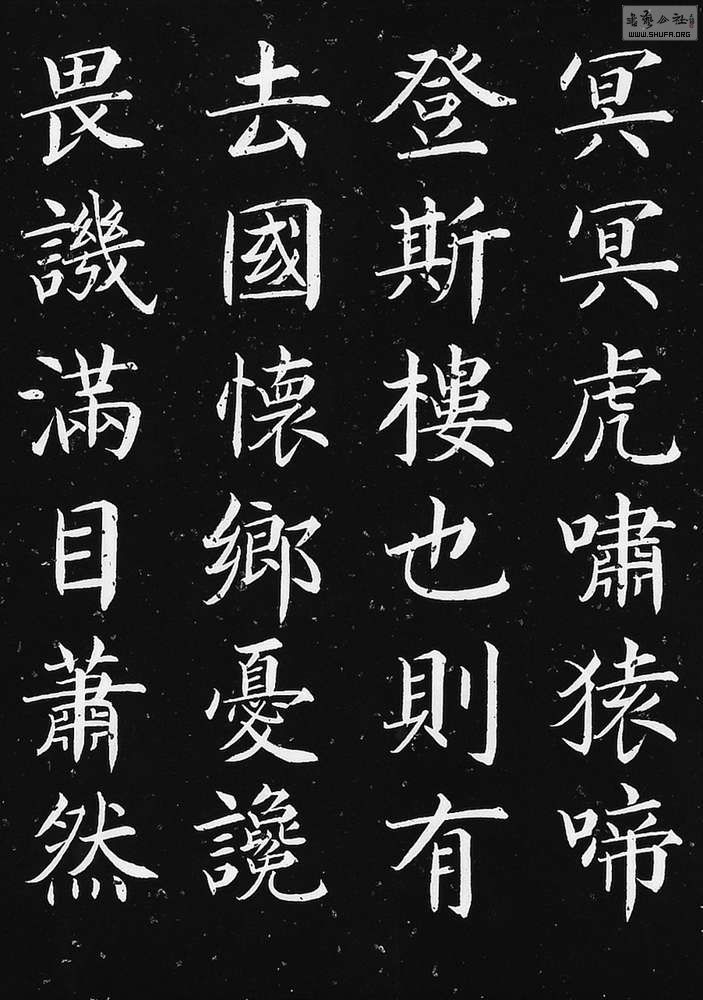 冥冥虎嘯猿啼
登斯樓也則有
去國懷鄉憂讒
畏譏滿目蕭然
書藝公社
WWW.SHUFA.ORG